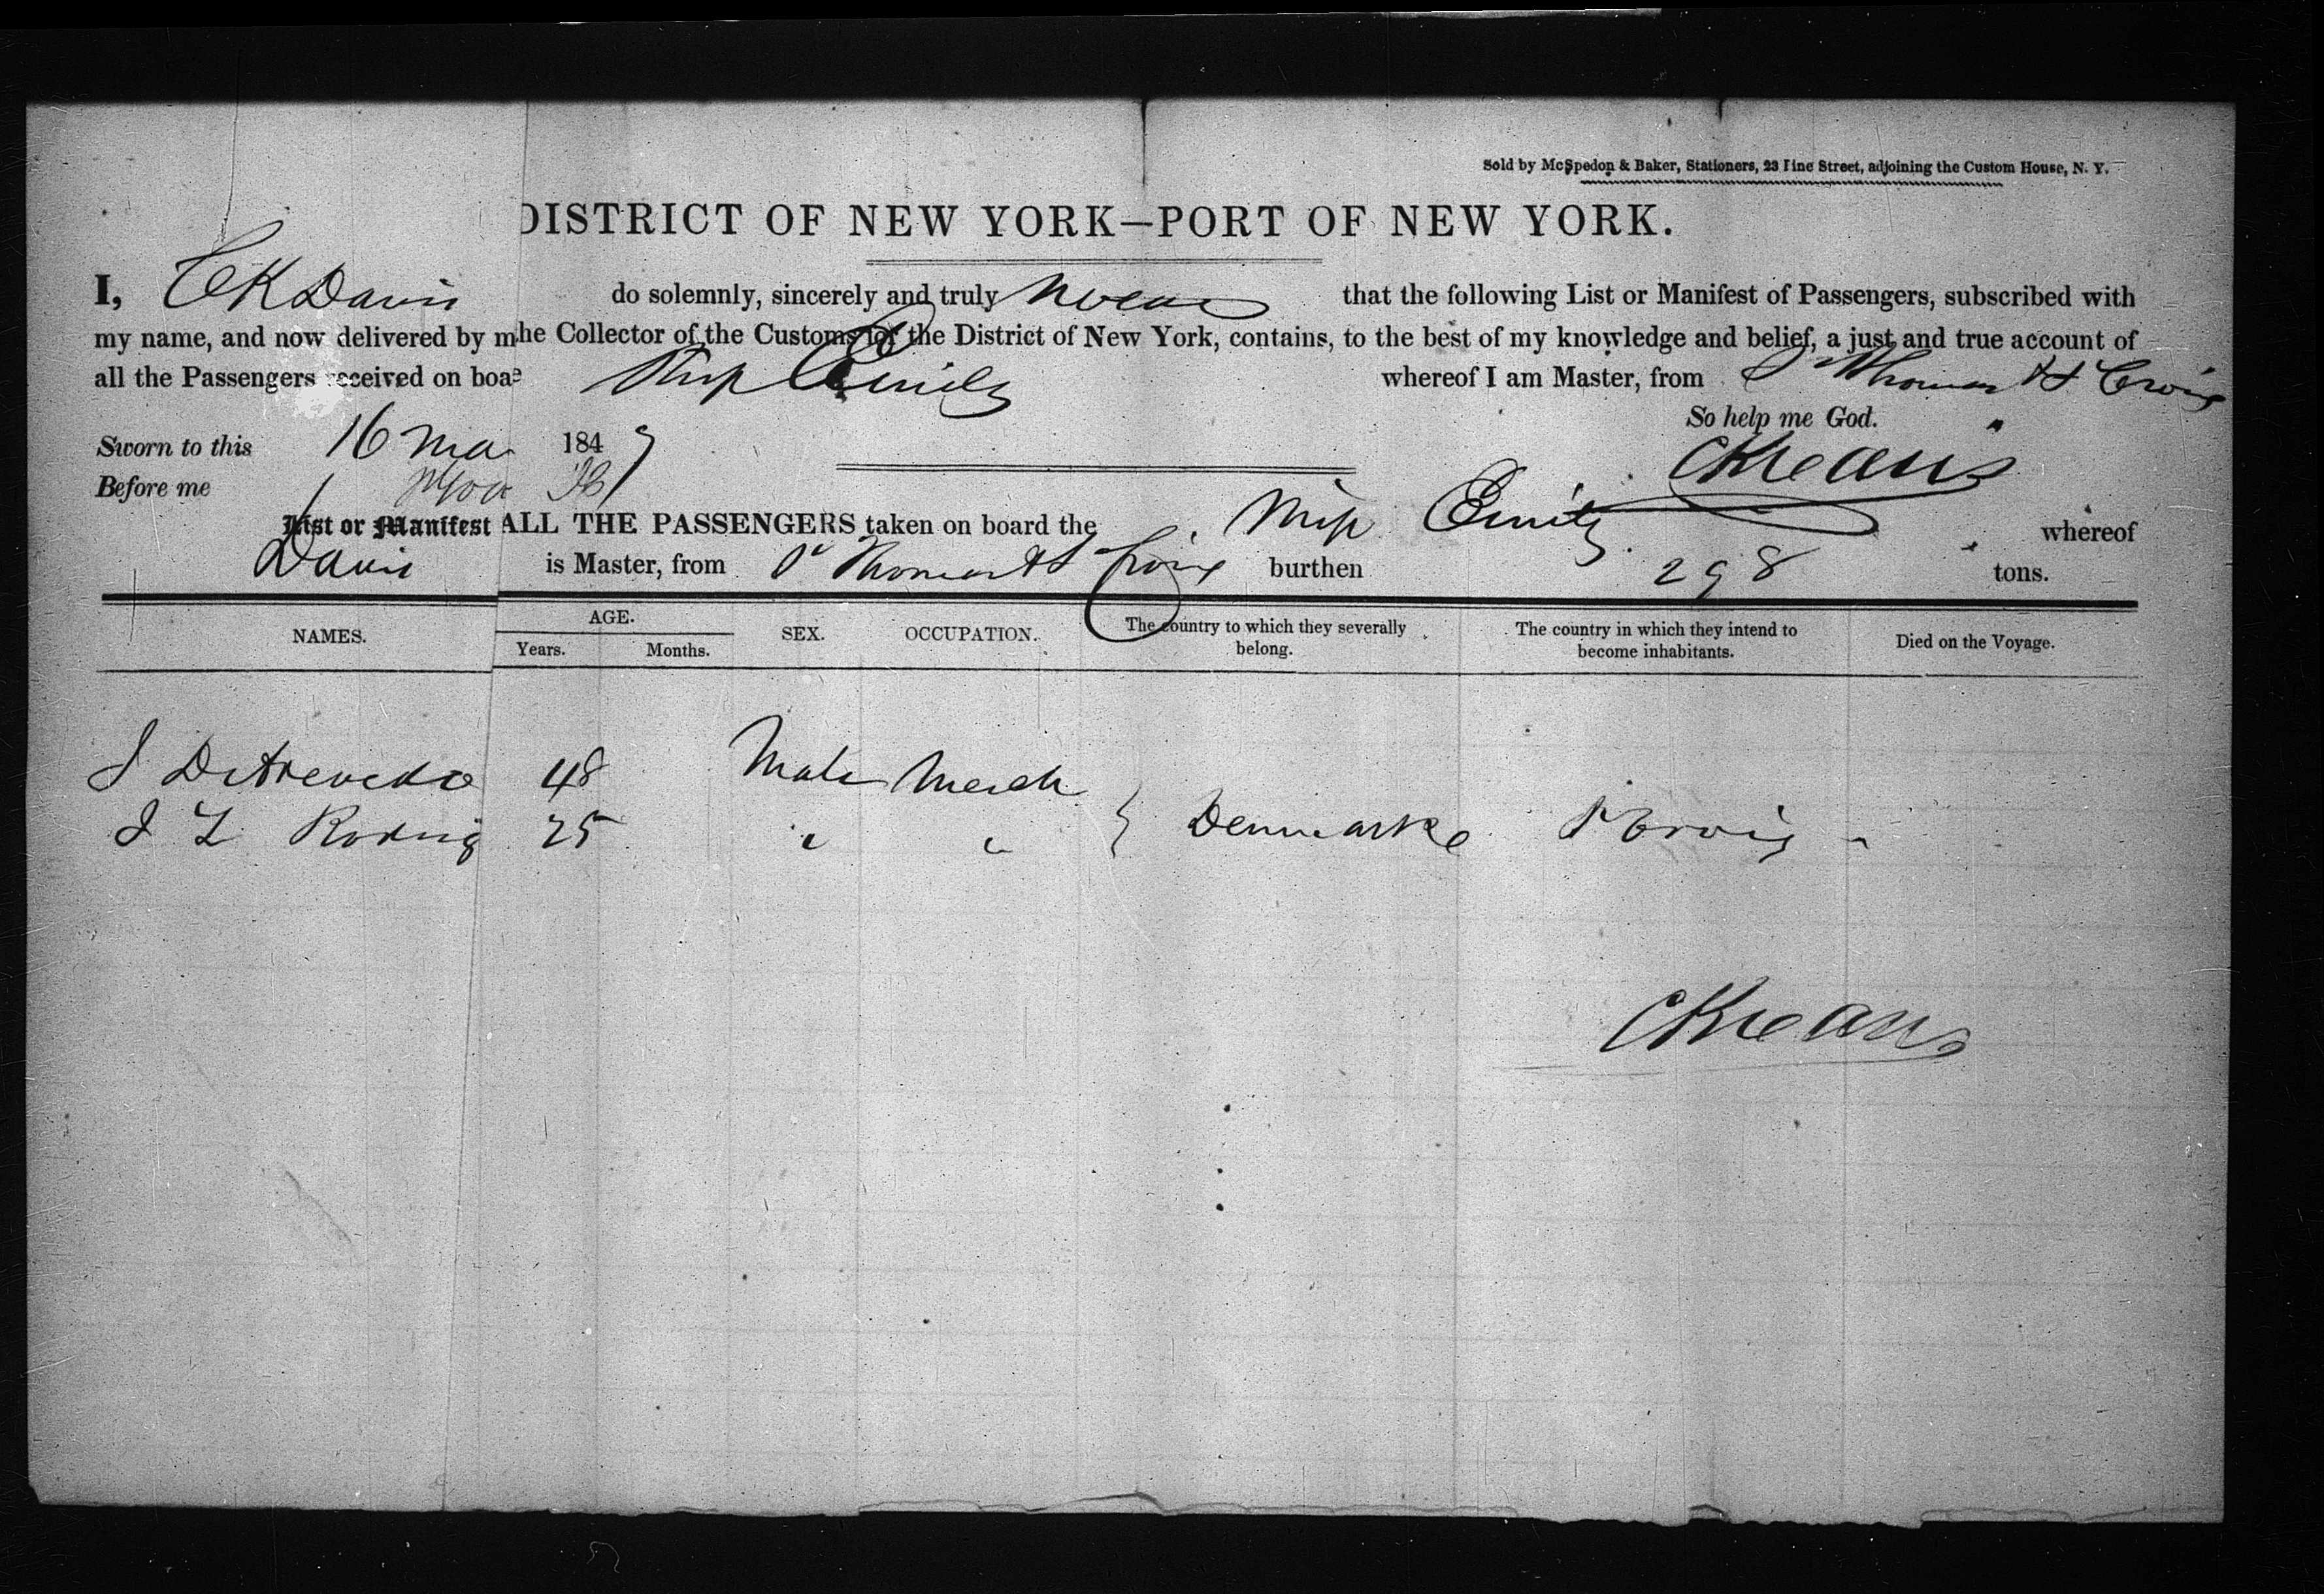 Sold by McSpedon & Baker, Stationers, 23 Pine Street, adjoining the Custom House, N. Y.
DISTRICT OF NEW YORK—PORT OF NEW YORK.
I, C K Davis do solemnly, sincerely and truly swear that the following List or Manifest of Passengers, subscribed with
my name, and now delivered by m he Collector of the Customs for the District of New York, contains, to the best of my knowledge and belief, a just and true account of
all the Passengers received on boa Ship Emily whereof I am Master, from St Thomas & St Croix
So help me God.
Sworn to this 16 Ma 1847
Before me
List or Manifest ALL THE PASSENGERS taken on board the Ship Emily whereof
Davis is Master, from St Thomas & St Croix burthen 298 tons.
NAMES. AGE. SEX. OCCUPATION. The country to which they severally belong. The country in which they intend to become inhabitants. Died on the Voyage.
Years. Months.
J DeAzevedo 48 Male Merch
J L Rodrig 25 " " } Denmark St Croix